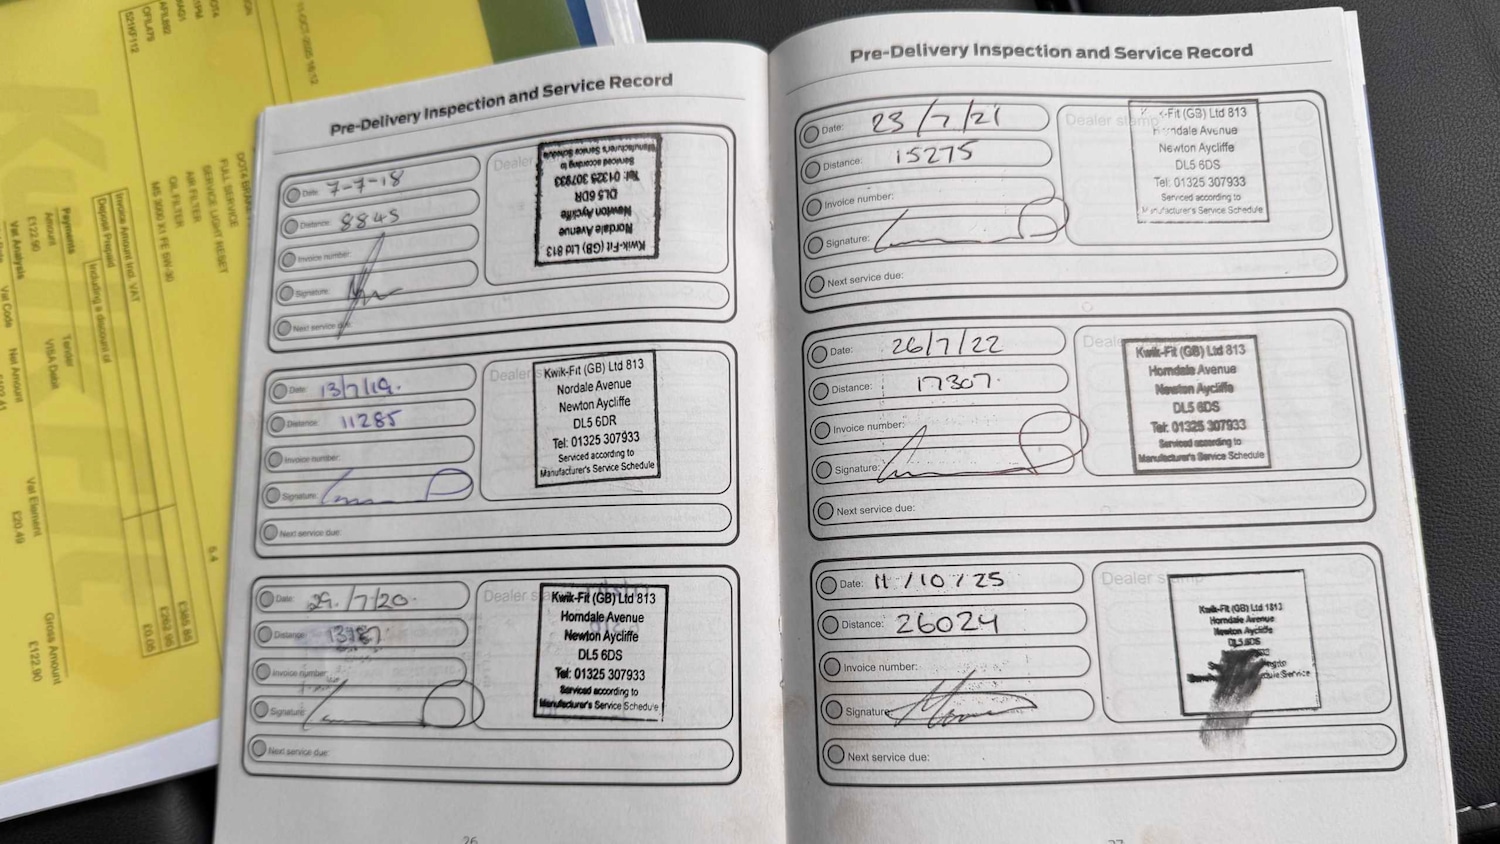 Pre-Delivery Inspection and Service Record
Date: 7-7-18
Distance: 8845
Invoice number:
Signature:
Next service due:
Dealer
Kwik-Fit (GB) Ltd 813
Nordale Avenue
Newton Aycliffe
DL5 6DR
Tel: 01325 307933
Serviced according to
Manufacturer's Service Schedule
Date: 13/7/19.
Distance: 11285
Invoice number:
Signature:
Next service due:
Dealer s
Kwik-Fit (GB) Ltd 813
Nordale Avenue
Newton Aycliffe
DL5 6DR
Tel: 01325 307933
Serviced according to
Manufacturer's Service Schedule
Date: 29/7/20.
Distance:
Invoice number:
Signature:
Next service due:
Dealer sta
Kwik-Fit (GB) Ltd 813
Horndale Avenue
Newton Aycliffe
DL5 6DS
Tel: 01325 307933
Serviced according to
Manufacturer's Service Schedule
26
Pre-Delivery Inspection and Service Record
Date: 23/7/21
Distance: 15275
Invoice number:
Signature:
Next service due:
Dealer stamp
Kwik-Fit (GB) Ltd 813
Horndale Avenue
Newton Aycliffe
DL5 6DS
Tel: 01325 307933
Serviced according to
Manufacturer's Service Schedule
Date: 26/7/22
Distance: 17307.
Invoice number:
Signature:
Next service due:
Deale
Kwik-Fit (GB) Ltd 813
Horndale Avenue
Newton Aycliffe
DL5 6DS
Tel: 01325 307933
Serviced according to
Manufacturer's Service Schedule
Date: 11/10/25
Distance: 26024
Invoice number:
Signature:
Next service due:
Dealer s
Kwik-Fit (GB) Ltd 1813
Horndale Avenue
Newton Aycliffe
DL5 6DS
27
DOT4
521KF112
OFILA79
DOT4 BRAKE
FULL SERVICE
SERVICE LIGHT RESET
AIR FILTER
OIL FILTER
5.4
Invoice Amount Incl. VAT
Including a discount of
Deposit Prepaid
£365.85
£262.95
£0.05
Payments
Tender
VISA Debit
Amount
£122.90
Vat Analysis
Vat Code
Net Amount
Vat Element
£20.49
Gross Amount
£122.90